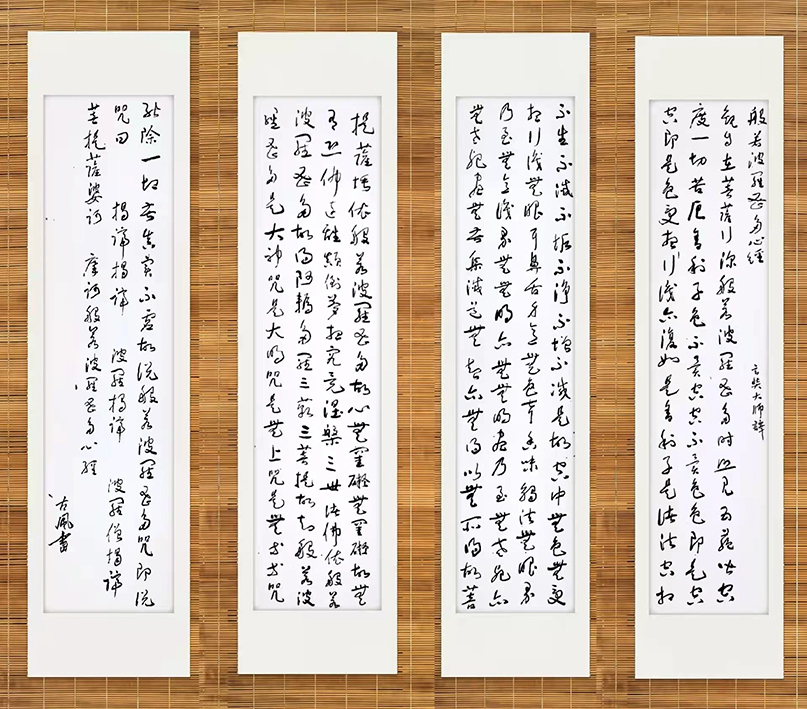 般若波羅蜜多心經
玄奘大師譯
觀自在菩薩行深般若波羅蜜多時照見五蘊皆空
度一切苦厄舍利子色不異空空不異色色即是空
空即是色受想行識亦復如是舍利子是諸法空相
不生不滅不垢不淨不增不減是故空中無色無受
想行識無眼耳鼻舌身意無色聲香味觸法無眼界
乃至無意識界無無明亦無無明盡乃至無老死亦
無老死盡無苦集滅道無智亦無得以無所得故菩
提薩埵依般若波羅蜜多故心無罣礙無罣礙故無
有恐怖遠離顛倒夢想究竟涅槃三世諸佛依般若
波羅蜜多故得阿耨多羅三藐三菩提故知般若波
羅蜜多是大神咒是大明咒是無上咒是無等等咒
能除一切苦真實不虛故說般若波羅蜜多咒即說
咒曰 揭諦揭諦 波羅揭諦 波羅僧揭諦
菩提薩婆訶 摩訶般若波羅蜜多心經
古風書